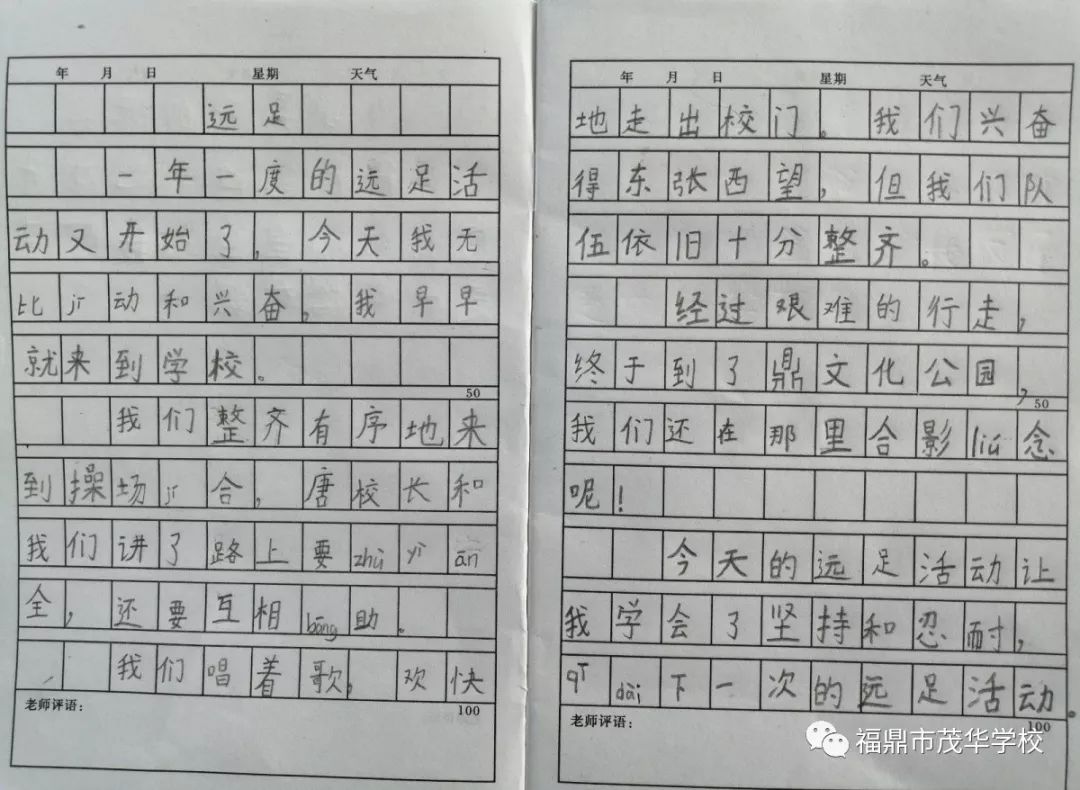 年 月 日 星期 天气
远足
一年一度的远足活
动又开始了，今天我无
比jī动和兴奋，我早早
就来到学校。
50
我们整齐有序地来
到操场jí合，唐校长和
我们讲了路上要zhù yì ān
全，还要互相bāng助。
我们唱着歌，欢快
老师评语：
100
年 月 日 星期 天气
地走出校门。我们兴奋
得东张西望，但我们队
伍依旧十分整齐。
经过艰难的行走，
终于到了鼎文化公园，
50
我们还在那里合影liú念
呢！
今天的远足活动让
我学会了坚持和忍耐，
qī dài下一次的远足活动。
老师评语：
100
福鼎市茂华学校